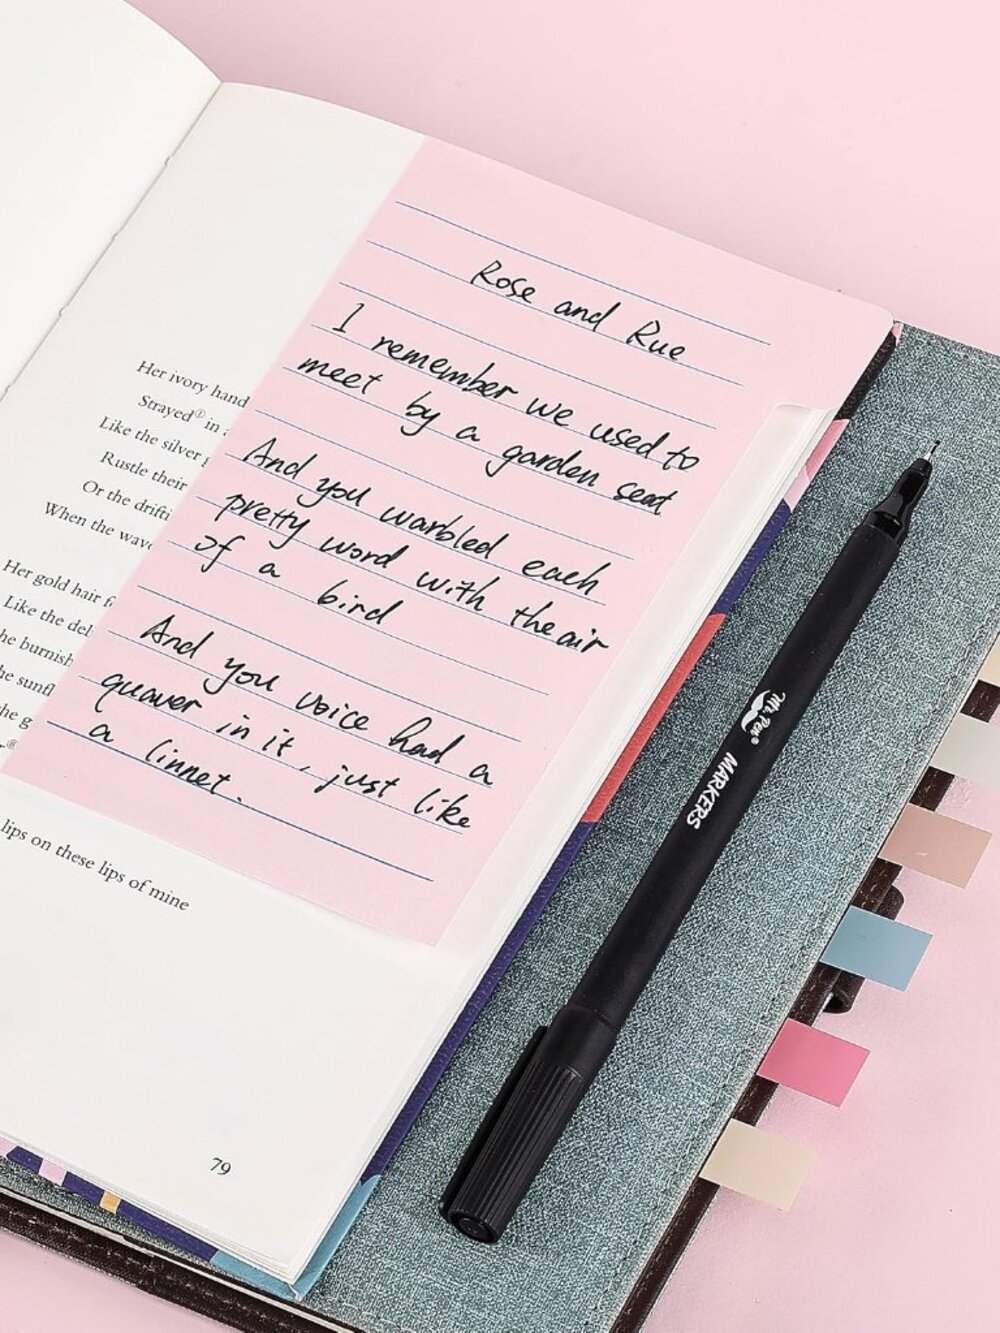 Rose and Rue
I remember we used to
meet by a garden seat
And you warbled each
pretty word with the air
of a bird
And you voice had a
quaver in it, just like
a linnet.
Her ivory hand
Strayed① in
Like the silver
Rustle their
Or the drifti
When the wave
Her gold hair f
Like the del
he burnish
he sunfl
he g
lips on these lips of mine
79
Mr. Pen®
MARKERS